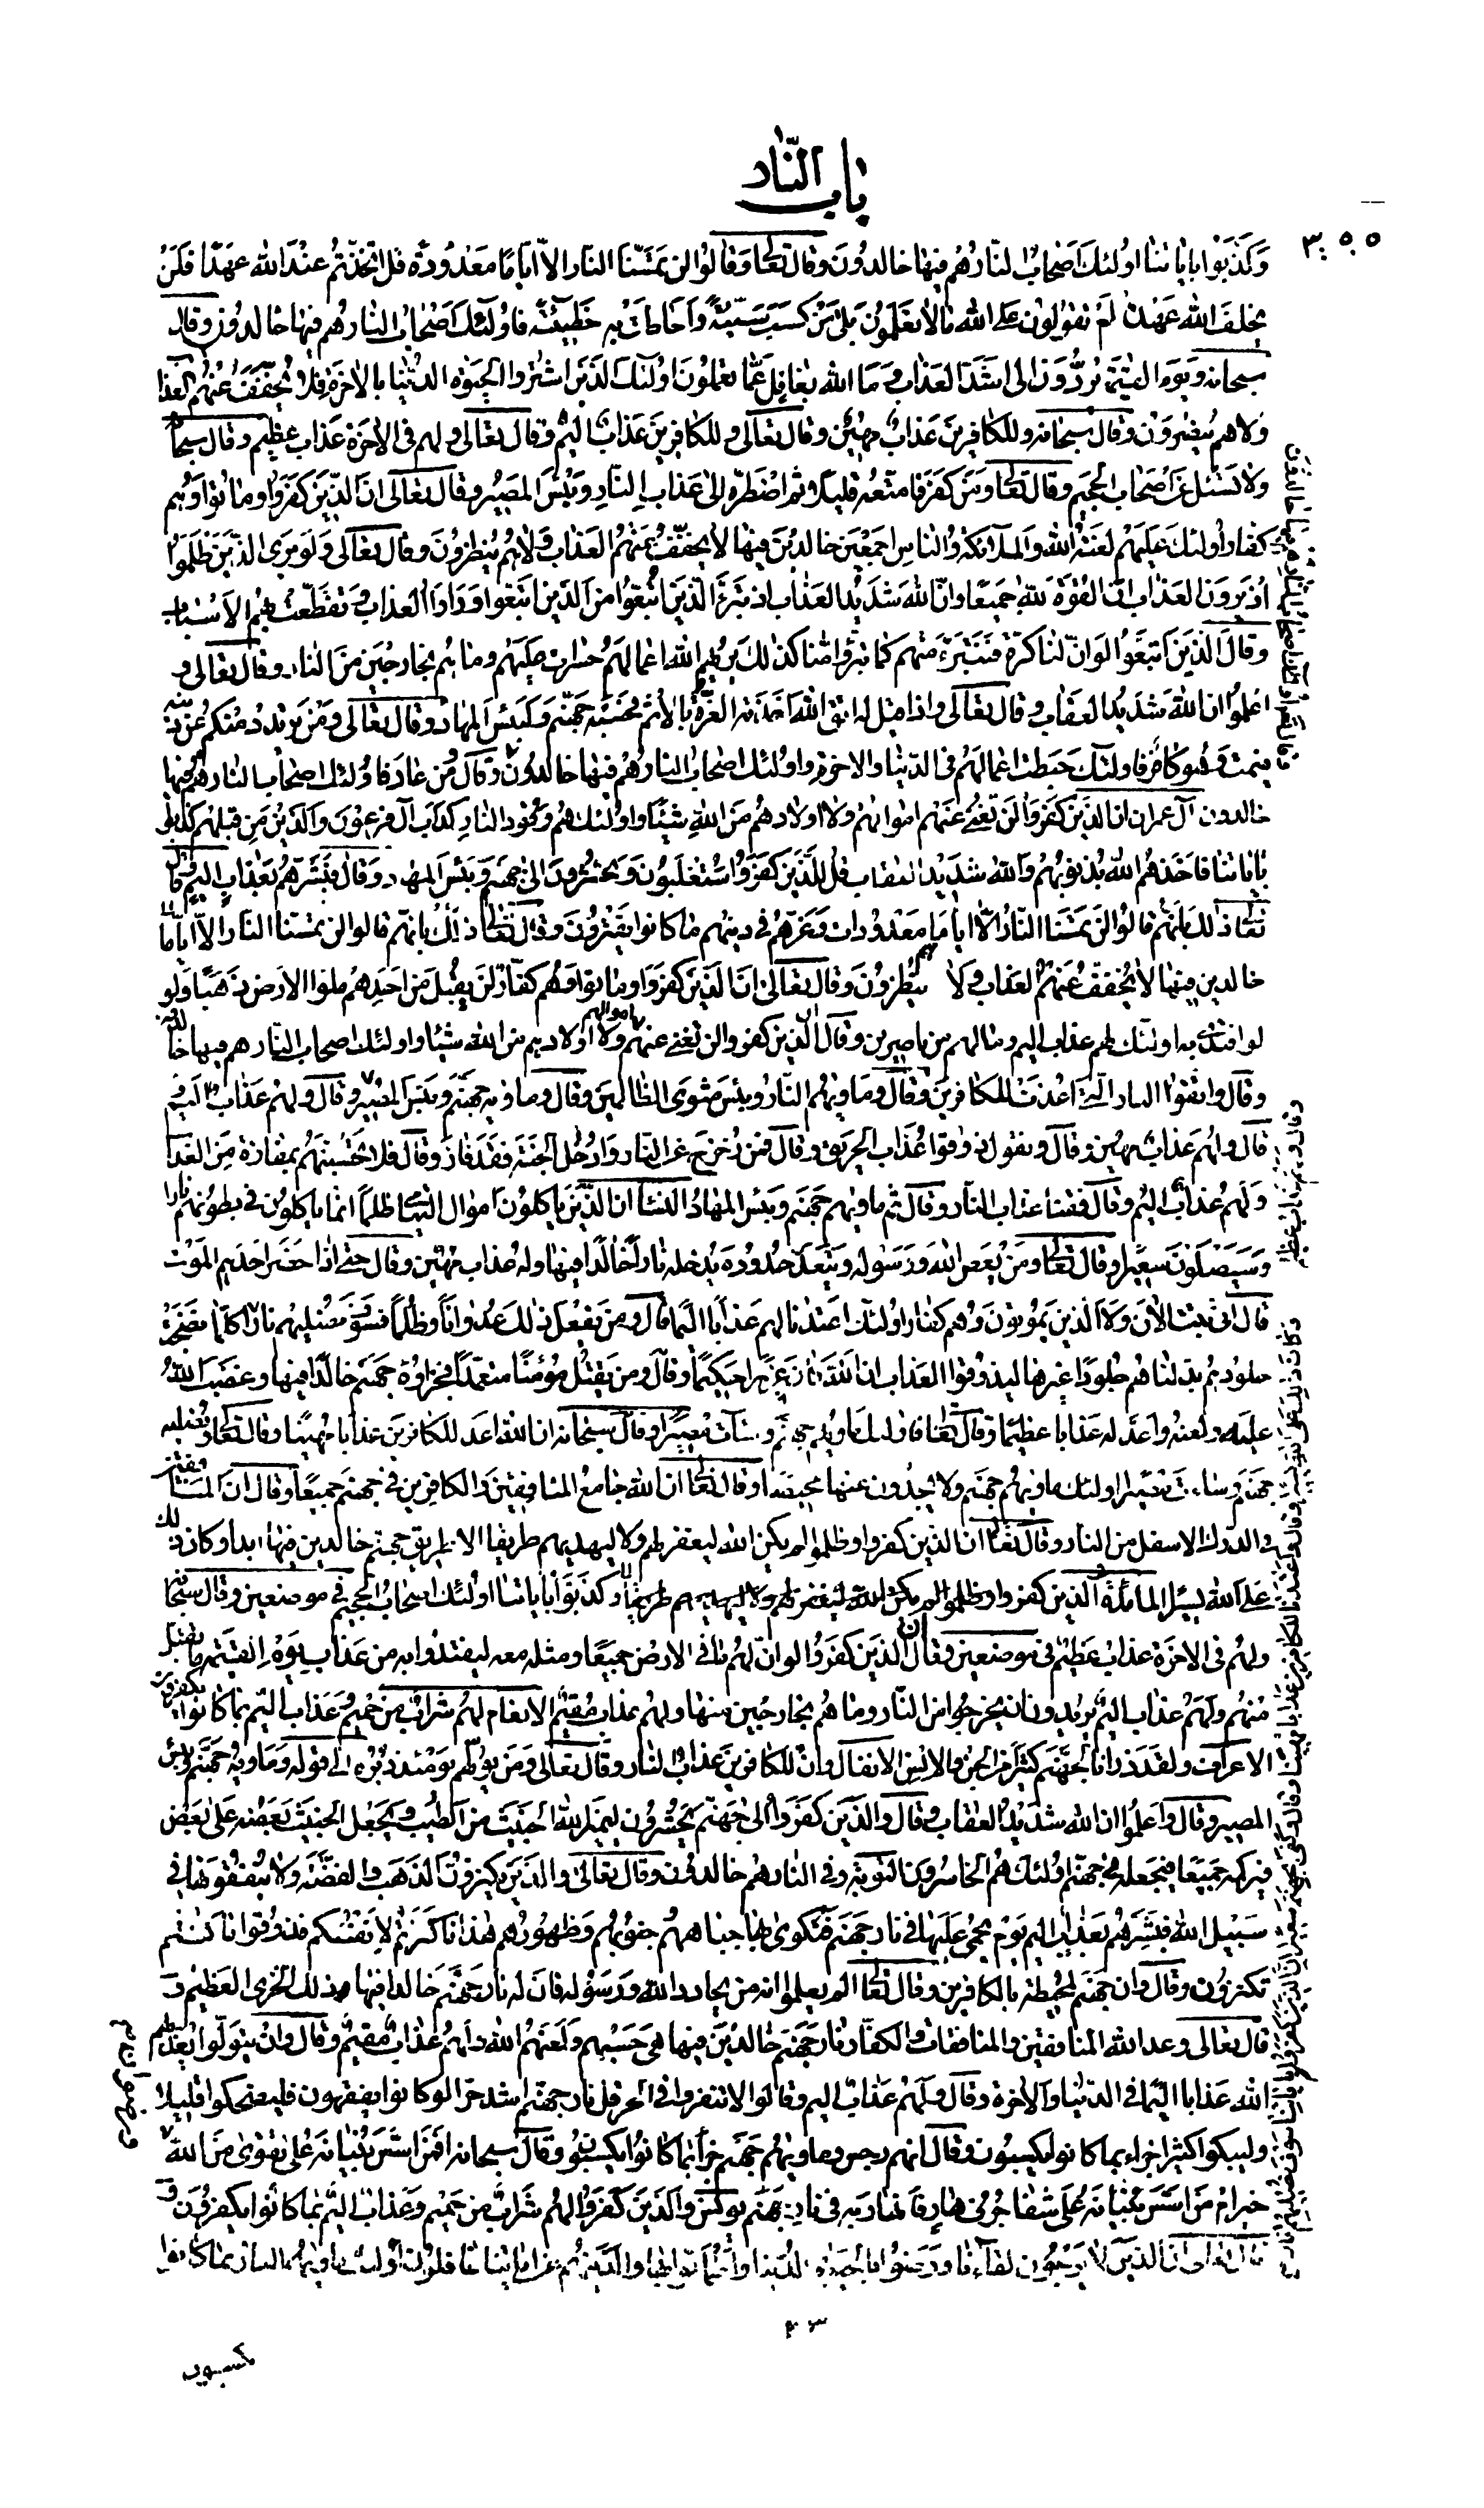 باب النّار
٣٠٥٥
وَكَذَّبُوا باٰياتنا اولئك اَصْحابُ النّار هُم فيها خالدُونَ وقال تعالى وَقالُوا لن تمَسّنا النار الاّ ايّامًا مَعْدُودَة قل اتّخذتُم عنْدَ الله عهَدًا فلَنْ
يخلفَ الله عَهْدهُ اَمْ تقولون على الله ما لا تعْلمُونَ بَلىٰ مَنْ كسَبَ سَيّئةً وَاَحاطَتْ به خطيئته فاولٰئكَ اَصْحابُ النار هُم فيها خالدُونَ وقال
سبحانه ويوم القيٰمَة يُرَدُّونَ الى اشَدّ العذَاب وَمَا الله بغافِل عَمّا تعْملُونَ اولٰئكَ الذَينَ اشتَروا الحَيٰوة الدّنيا بالاٰخرَة فلا يُخفّفُ عنْهُم العذاب
وَلا هم يُنصَرُونْ وقال سبحانه وللكافرينَ عَذَابٌ مهِينٌ وقال تعَالى وللكافرينَ عَذابٌ اليمٌ وقال تعَالى ولهم فى الاٰخرَة عَذابٌ عظيم وقال سبحانه
وَلا تسْئل عَنْ اَصْحاب الجَحيم وقال تعالى ومَنْ كفرَ فامتّعهُ قليلاً ثم اضْطَرّه الىٰ عَذاب النّار وَبئسَ المصيرُ وقال تعالى انّ الذّينَ كفَرُوا وماتُوا وَهُم
كفار اولئك عليهم لعنَة الله والملائكة والناس اجمَعينَ خالدينَ فيها لا يخفّفُ عنهُم العذاب ولا هُم يُنظرُونَ وقال تعالى ولَو يرَى الذّينَ ظلَمُوا
اذْ يرَونَ العذاب انّ القوّة لله جَميعًا وانّ الله شدَيد العذاب اذ تبَرّءَ الّذينَ اتُّبعُوا منَ الذّينَ اتّبَعُوا وَرَاَوُا العَذابَ وتقطّعَتْ بهِمُ الاَسْبابُ
وقالَ الذينَ اتّبعُوا لوَ انّ لنا كرّة فنتَبرّءَ منهم كما تبرّؤا منّا كذلك يُريهم الله اعمالهُم حسَرات عليهم وما هُم بخارجينَ منَ النار وقال تعَالى و
اعلمُوا ان الله شدَيد العقاب وقال تعَالى واذا قيل له اتق الله اخذته العزّة بالاثم فحَسْبُه جهَنّم ولبئسَ المهاد وقال تعالى ومَنْ يرتددْ منكم عَن دينه
فيمت وهُو كافرٌ فاولٰئكَ حَبطت اعمالهُم فى الدّنيا والاٰخرة واولئك اصحاب النار هُمْ فيها خالدُونَ وقال ومن عادَ فاولئك اصحاب النار هُم فيها
خالدون آل عمران انّ الذّينَ كفرَوا لن تغنىَ عنهُم اموالهُم ولا اولادهُم منَ الله شيئًا واولئك هُم وَقُودُ النار كدَاب آل فرعَونَ والذينَ من قبلهم كذبوا
باٰياتنا فاخَذهُم الله بذنوبهُم والله شديد العقاب قل للذّينَ كفرَوا ستُغلبُون وَتحشرُونَ الى جهنّم وبئسَ المهاد وقال فبشّرهُم بعَذاب اليم وقال
تعالى ذلك بانّهُم قالوا لن تمَسّنا النّارُ الاّ ايّامًا مَعْدُودات وَغَرّهُم فى دينهُم ما كانوا يَفْترُونَ وقال تعالى ذلك بانّهم قالوا لن تمسّنا النّار الاّ ايّامًا
خالدين فيها لا يُخفّفُ عنهُم العذاب ولا هم يُنظرُونَ وقال تعَالى انّ الذينَ كفرَوا وماتوا وهُم كفّار فلَنْ يقبَلَ من احَدهُم ملؤا الارَض ذهَبًا ولَو
لو افتدى به اولئك لهم عذاب اليم وما لهم من ناصرين وقال انّ الذين كفروا لن تغنى عنهم اموالهم ولا اولادهم من الله شيئا واولئك اصحاب النّار هم فيها خالدون
وقال واتقوا النار الّتى اعُدّتْ للكافرينَ وقال وَمَاويٰهُم النّار وبئسَ مثوىَ الظالمينَ وقال ومَاويه جهنّم وبئسَ المصير وقال ولهُم عذابٌ اليم
قال ولهُم عَذابٌ مهين وقال ونقول ذوقوا عَذابَ الحَريق وقال فمَن زُحزحَ عَن النّار وَاُدْخلَ الجنّة فقَد فازَ وقال فلا تحسَبنّهُم بمفازة منَ العَذاب
وَلهُم عَذابٌ اليم وقال فقنا عذاب النّار وقال ثم مَاويٰهم جهنّم وبئسَ المهادُ النساء انّ الذّينَ ياكلونَ اموال اليتامى ظلمًا انما ياكلونَ فى بطونهم نارا
وَسَيَصْلَونَ سعيًرا وقال تعالى ومَنْ يَعْص الله وَرَسُوله ويتَعدّ حدُودهُ يدُخله نارًا خالدًا فيها وله عذاب مُهينٌ وقال حتى اذا حضَرَ احدهم الموْت
قال انّى تبت الاٰنَ وَلا الذين يَموُتونَ وهم كفّار اولئك اعتدنا لهم عَذابًا اليمًا قال ومن يفعل ذلك عُدوانًا وظلمًا فسوفَ نصليه نارًا كلما نضجَتْ
جلودُهم بدّلناهم جلودًا غيرها ليذوقوا العذاب انّ الله كان عزيزا حكيمًا وقال ومن يَقتُل مؤمنًا متعمّدًا فجزاؤه جهنّم خالدًا فيها وغضبَ اللهُ
عليه ولعنه واعدّ له عذابا عظيمًا وقال تعالى فاولئك مَاويٰهم جهنّم وسائت مصيرًا وقال سبحانه انّ الله اعدّ للكافرينَ عذابا مهينا وقال تعالى ونصليه
جهنّم وسائت مصيرا اولئك ماويٰهُم جهنّم ولا يجدُون عنها محيصًا وقال تعالى انّ الله جامع المنافقين والكافرين فى جهنّم جميعًا وقال انّ المنافقين
فى الدرك الاسفل من النار وقال تعالى انّ الذّين كفروا وظلموا لم يكن الله ليغفر لهم ولا ليهديهم طريقا الا طريق جهنّم خالدين فيها ابدا وكان ذلك
على الله يسيرًا المائدة الذين كفروا وكذّبُوا باٰياتنا اولئك اصحابُ الجحيم فى موضعين وقال سبحانه
ولهُم فى الاٰخرَة عذابٌ عظيمٌ فى موضعين وقال انّ الذينَ كفَرُوا لو انّ لهُم ما فى الارضْ جميعًا ومثله معه ليفتدُوا به من عَذاب يوم القيٰمَة ما تقبّل
منهُم ولهُم عَذاب اليمٌ يُريدُون ان يخرجُوا من النّار وما هُم بخارجين منها ولهم عذاب مُقيمٌ الانعام لهُم شرابٌ من حَميم وعَذاب اليم بما كانوا يكفرون
الاعراف ولقَد ذرَانا لجهنّم كثيًرا من الجنّ والانسِ الانفال وانّ للكافرينَ عَذابَ النار وقال تعالى ومَن يولّهم يومَئذٍ دبُرَه الى قوله ومَاويه جهنّم وبئس
المصير وقال واعلمُوا ان الله شديدُ العقاب وقال والذّينَ كفرَوا الى جَهَنّم يُحْشرُون ليميَز اللهُ الخبيثَ منَ الطّيبِ ويجَعْل الخبيثَ بَعضَهُ علىٰ بَعض
فيركمهُ جَميعًا فيجعلهُ فى جهنّم اولئك هُم الخاسرُونَ التوبة وفى النار هُم خالدُون وقال تعَالى والذّينَ يكنزونَ الذّهَب والفضّة ولا ينُفقُونَها فى
سَبيْل الله فبشّرهُم بعَذابٍ اليم يَوم يُحمى عليها فى نار جهَنّم فَتُكوىٰ بها جباههُم وجنُوبهُم وَظُهورُهم هٰذا ما كنَزتمُ لاَنفسُكم فذوقوا ما كنتُم
تكنزُون وقال وان جهنّم لمحيطة بالكافرين وقال تعالى الم يعلموا انه من يحادد الله ورَسُوله فان له نار جهنّم خالدا فيها ذلك الخزى العَظيم و
قال تعالى وعد الله المنافقين والمنافقات والكفّار نار جَهنّم خالدينَ فيها هىَ حَسْبُهم ولعنهُم الله ولهُم عَذابٌ مقيمٌ وقال وان يتولّوا يُعَذّبهم
الله عَذابًا اليمًا فى الدّنيا والاٰخرة وقال ولهُم عَذابٌ اليم وقالوا لا تنفروا فى الحرّ قل نار جهنّم اشد حرّا لو كانوا يفقهون فليضحكوا قليلا
وليبكوا كثيًرا جزاء بما كانوا يكسبُون وقال انهم رجس ومَاويٰهُم جهنّم جزاءً بما كانُوا يكسبُون وقال سبحانه افمَن اَسّسَ بُنْيانه على تقوىٰ منَ الله
خير ام مَنْ اسّسَ بُنيانهُ علىٰ شفا جُرفٍ هارٍ فانهار به فى نار جهنّم يونس والذينَ كفَرُوا لهُم شرابٌ من حَميم وعَذابٌ اليمٌ بما كانُوا يكفرُونَ و
قال تعالى انّ الذينَ لا يَرجُون لقاءنا ورَضوا بالحيٰوة الدّنيا واطمَانّوا بها والذّينَ هُم عن اٰياتنا غافلوُنَ اولئك ماويٰهُم النار بما كانوا
٢٣
يكسبون